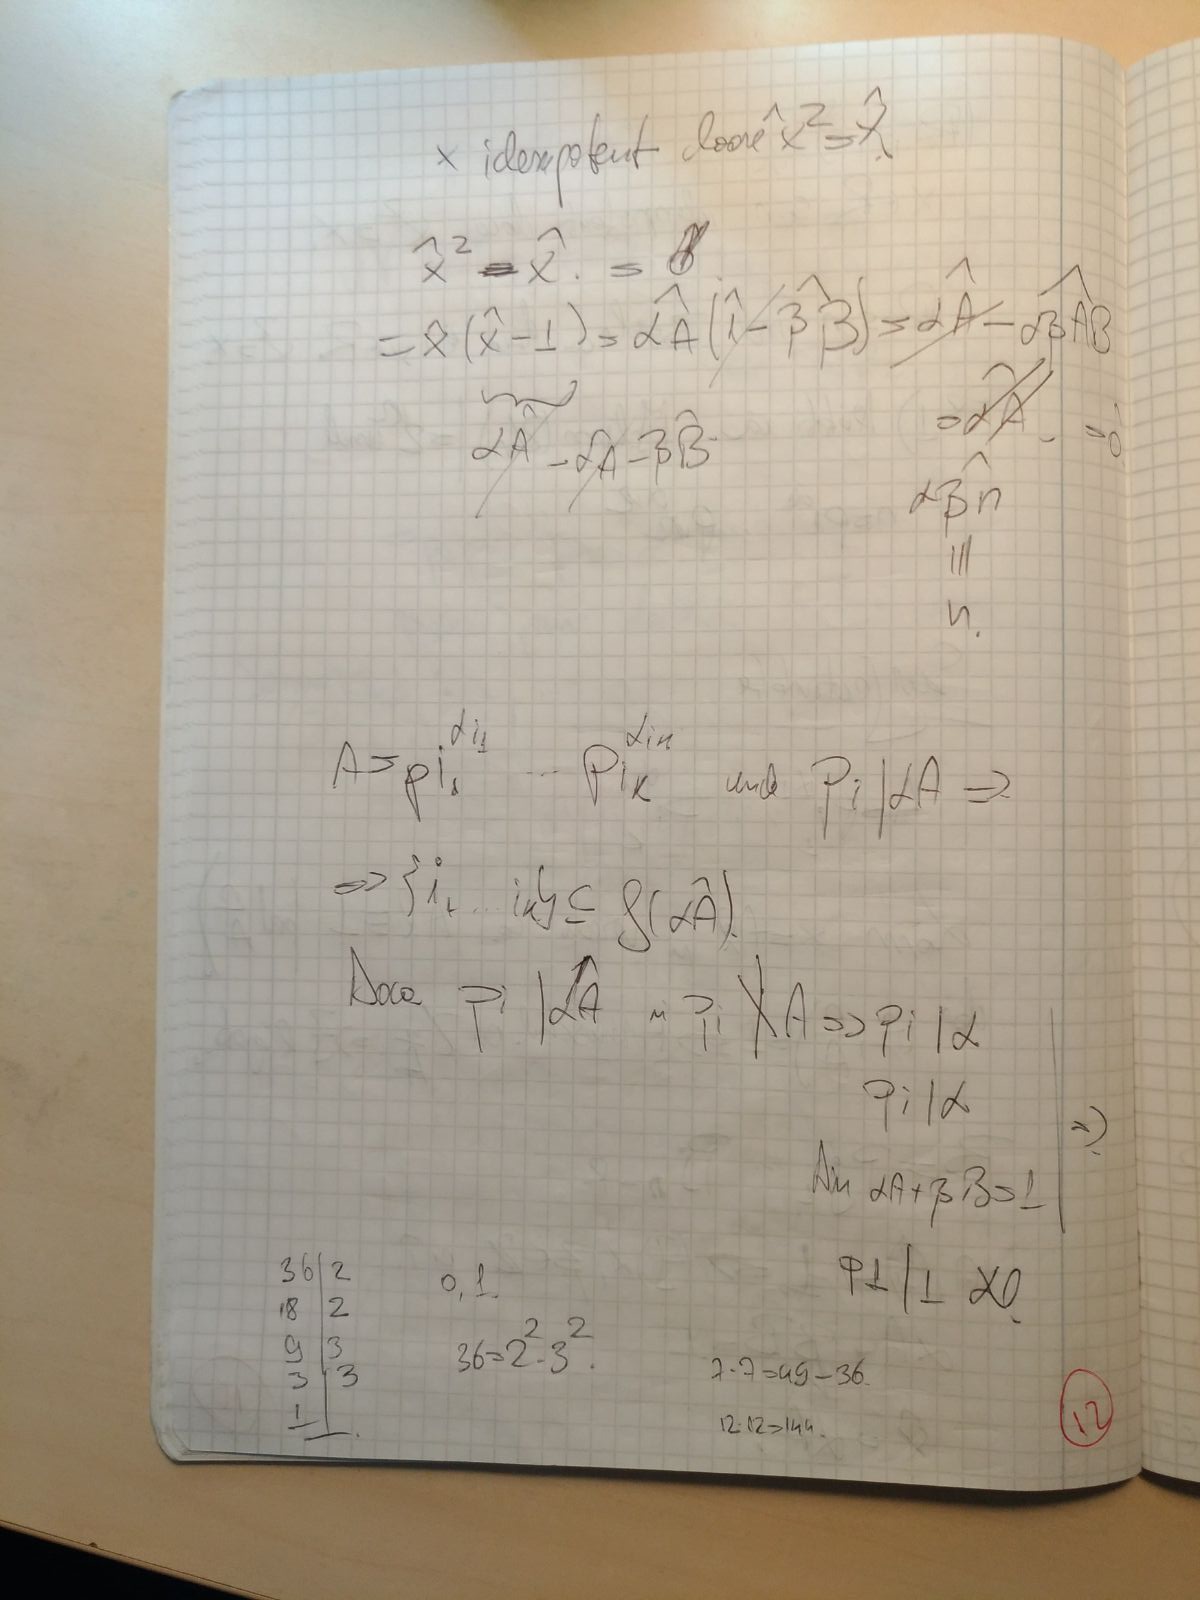 x idempotent dacă x̂² = x̂.
x̂² - x̂. = 0.
= x̂(x̂-1) = αÂ(1̂ - βB̂) = αÂ - αβAB
αÂ - αA - βB̂
= αÂ. = 0̂
αβn̂
|||
n.
A = pi₁^αi₁ ... Pik^αik unde Pi | αA ⇒
⇒ {i₁ ... ik} ⊆ ρ(αÂ).
Daca Pi | αÂ Pi ∤ A ⇒ Pi | α
Pi | α
Din αA + βB = 1
⇒)
P1 | 1 αO.
36 | 2
18 | 2
9 | 3
3 | 3
1 |
0, 1
36 = 2² · 3².
7·7 = 49 - 36.
12·12 = 144.
12